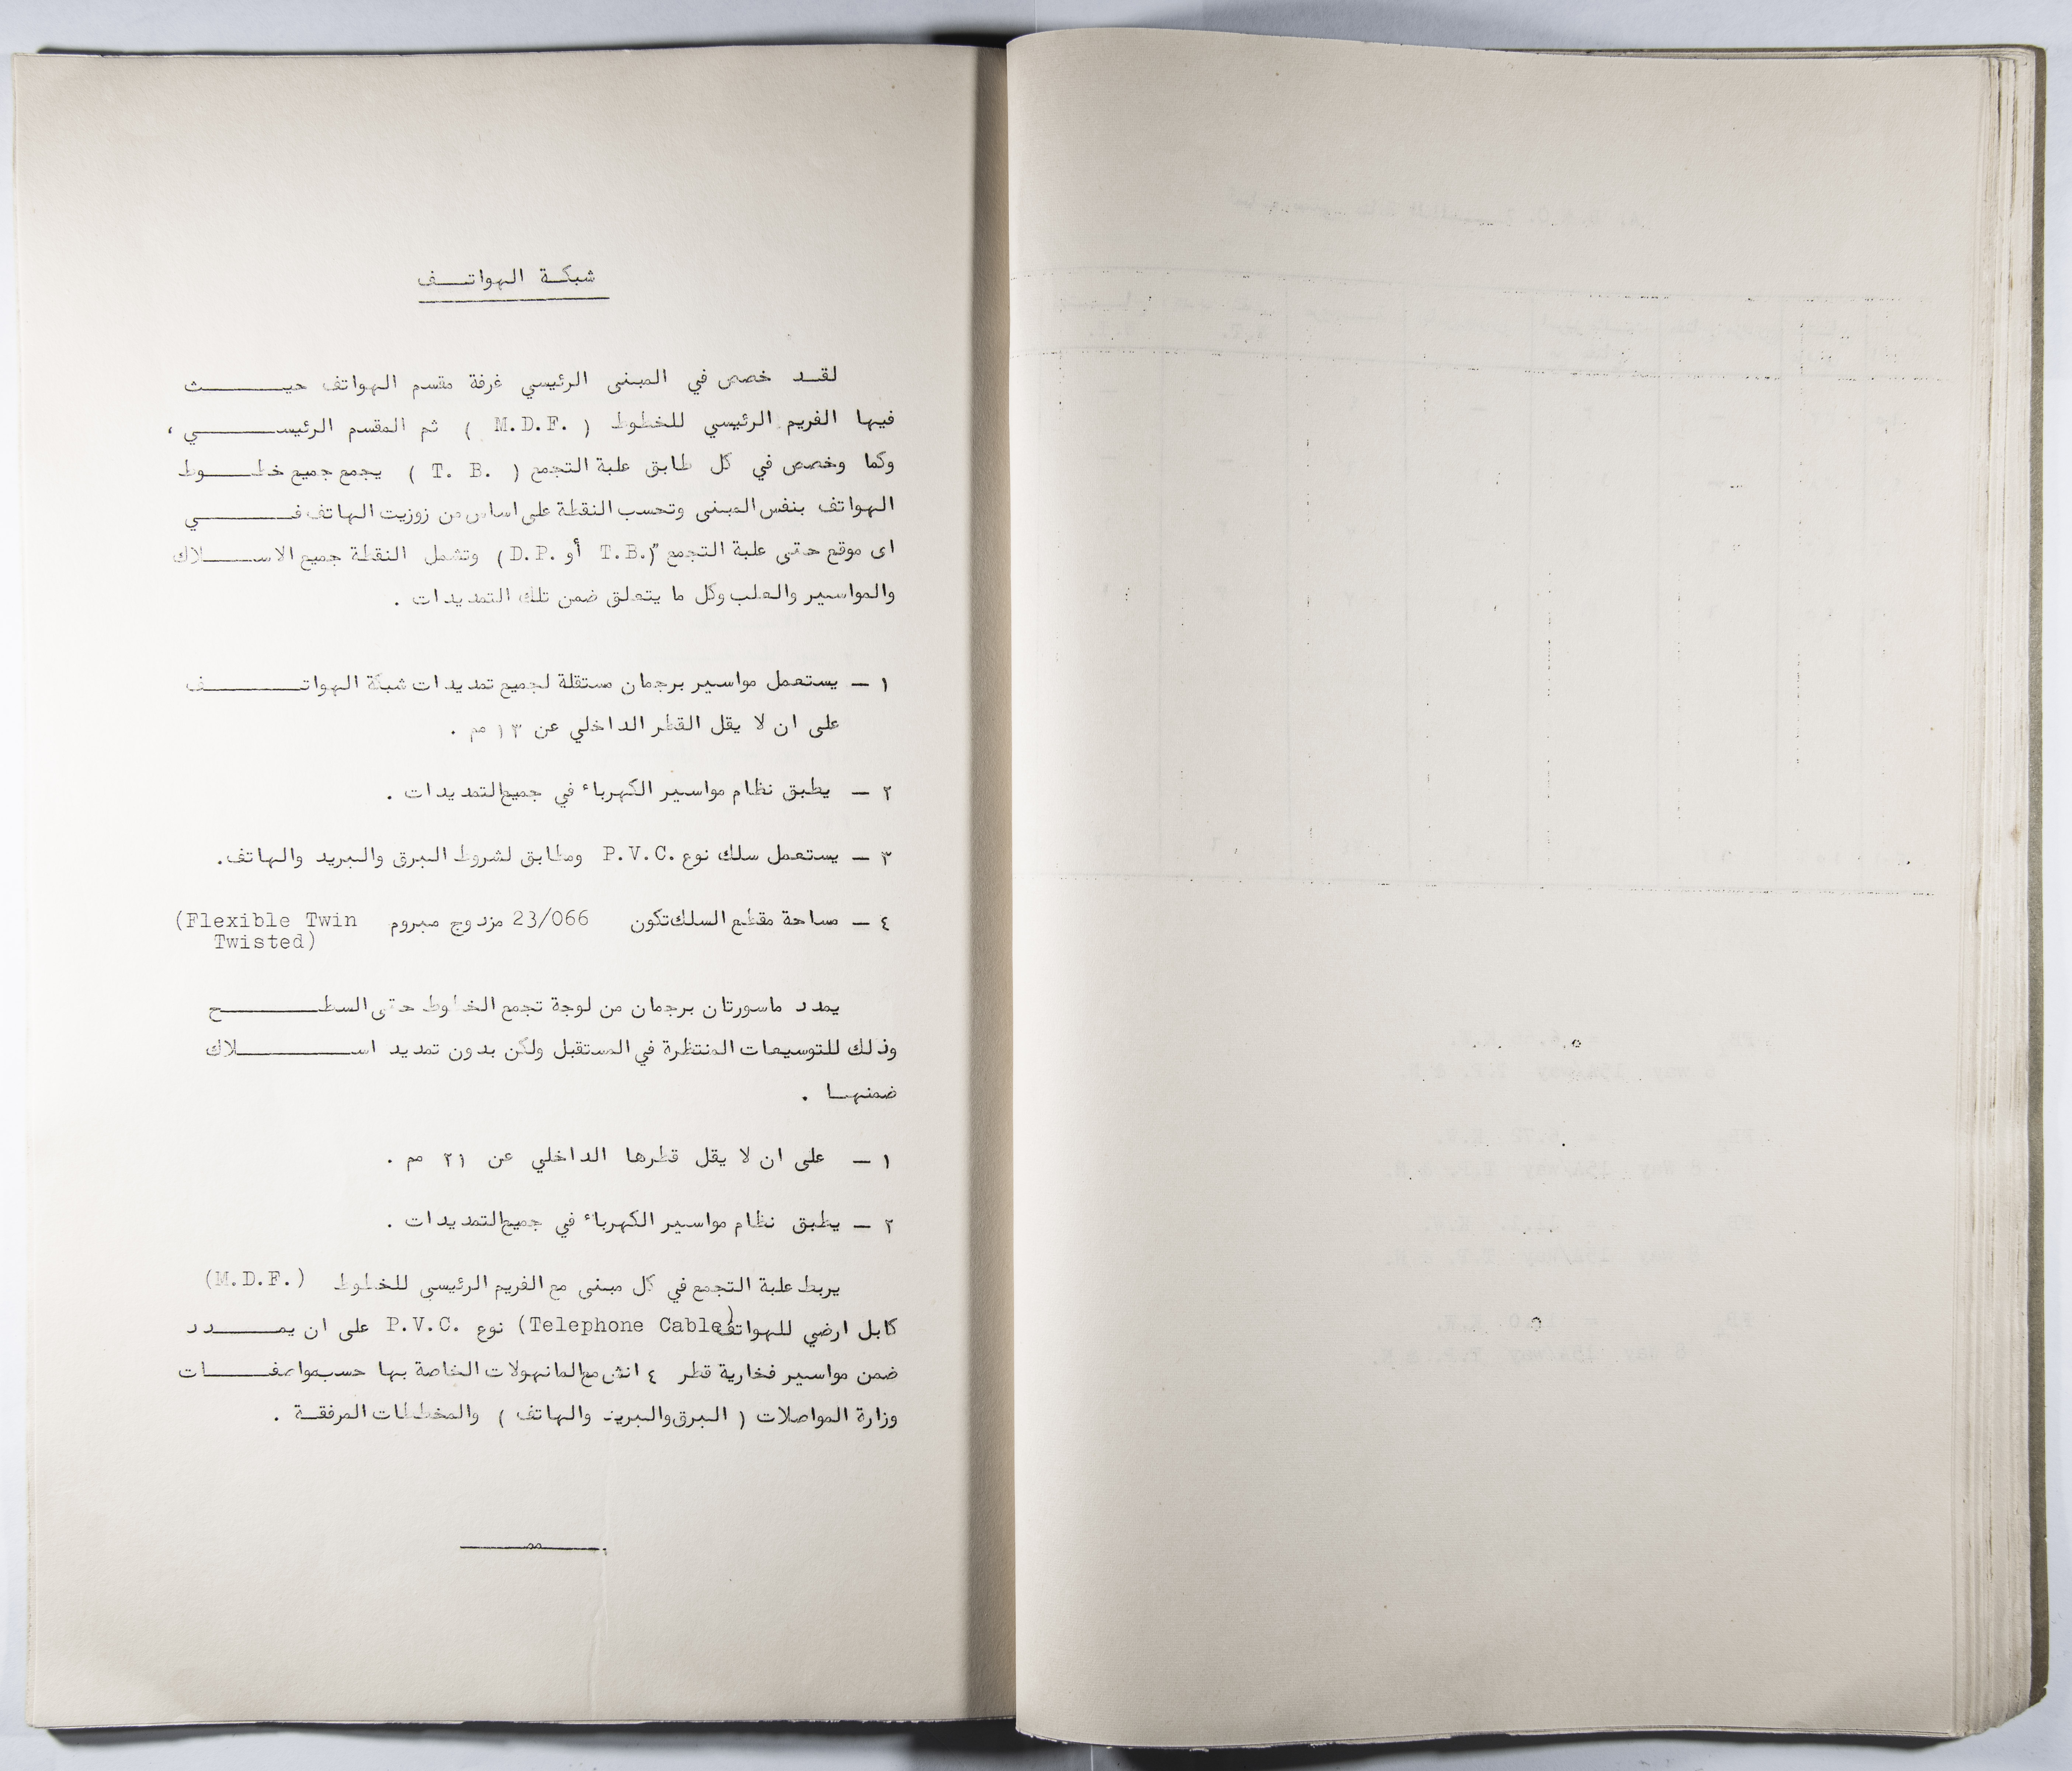 شبكة الهواتف
لقد خصص في المبنى الرئيسي غرفة مقسم الهواتف حيث
فيها الفريم الرئيسي للخطوط ( M.D.F. ) ثم المقسم الرئيسي ،
وكما وخصص في كل طابق علبة التجمع ( T. B. ) يجمع جميع خطوط
الهواتف بنفس المبنى وتحسب النقطة على اساس من زوزيت الهاتف في
اى موقع حتى علبة التجمع "(.T.B أو .D.P) وتشمل النقطة جميع الاسلاك
والمواسير والعلب وكل ما يتعلق ضمن تلك التمديدات .
١ – يستعمل مواسير برجمان مستقلة لجميع تمديدات شبكة الهواتف
على ان لا يقل القطر الداخلي عن ١٣ مم .
٢ – يطبق نظام مواسير الكهرباء في جميع التمديدات .
٣ – يستعمل سلك نوع .P.V.C ومطابق لشروط البرق والبريد والهاتف.
٤ – مساحة مقطع السلك تكون 23/066 مزدوج مبروم (Flexible Twin
Twisted)
يمدد ماسورتان برجمان من لوجة تجمع الخطوط حتى السطح
وذلك للتوسيعات المنتظرة في المستقبل ولكن بدون تمديد اسلاك
ضمنها .
١ – على ان لا يقل قطرها الداخلي عن ٢١ مم .
٢ – يطبق نظام مواسير الكهرباء في جميع التمديدات .
يربط علبة التجمع في كل مبنى مع الفريم الرئيسى للخطوط (M.D.F.)
كابل ارضي للهواتف (Telephone Cable) نوع .P.V.C على ان يمدد
ضمن مواسير فخارية قطر ٤ انش مع المانهولات الخاصة بها حسب مواصفات
وزارة المواصلات ( البرق والبريد والهاتف ) والمخططات المرفقة .